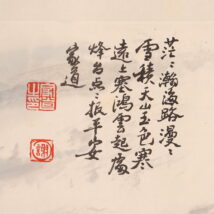 茫〻瀚海路漫〻
雪積天山玉色寒
遠上寒鴻雲起處
烽台点〻报平安
家道